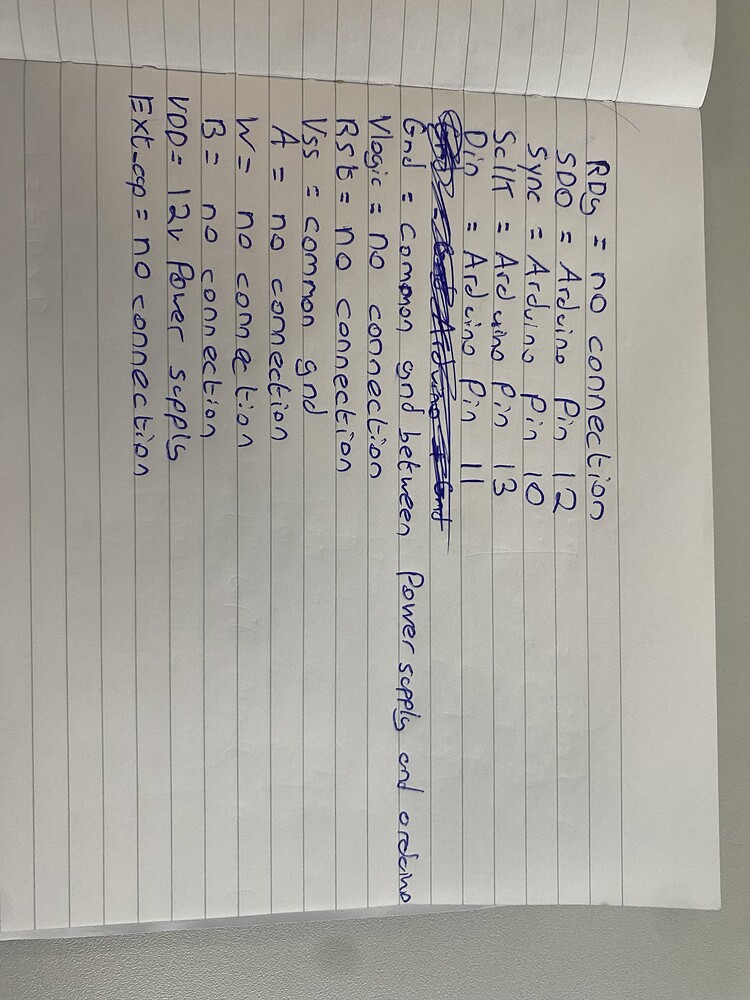 RDy = no connection
SDO = Arduino Pin 12
Sync = Arduino Pin 10
Sclk = Arduino Pin 13
Din = Arduino Pin 11
Gnd = Common gnd between Power supply and arduino
Vlogic = no connection
Rst = no connection
Vss = common gnd
A = no connection
W = no connection
B = no connection
VDD = 12v Power supply
Ext_cap = no connection